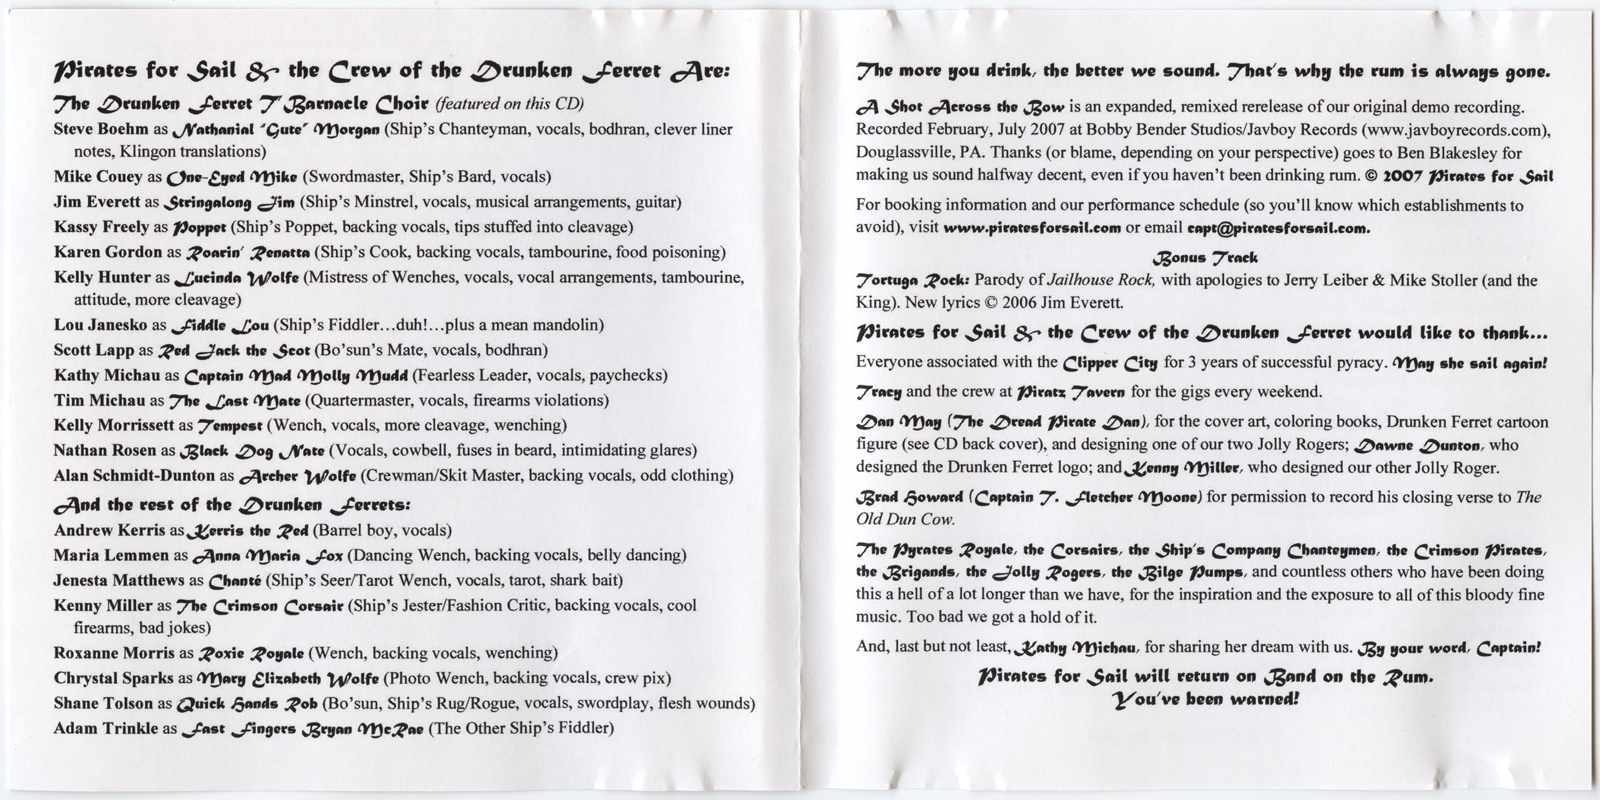 Pirates for Sail & the Crew of the Drunken Ferret Are:
The Drunken Ferret T Barnacle Choir (featured on this CD)
Steve Boehm as Nathanial "Gute" Morgan (Ship's Chanteyman, vocals, bodhran, clever liner
notes, Klingon translations)
Mike Couey as One-Eyed Mike (Swordmaster, Ship's Bard, vocals)
Jim Everett as Stringalong Jim (Ship's Minstrel, vocals, musical arrangements, guitar)
Kassy Freely as Poppet (Ship's Poppet, backing vocals, tips stuffed into cleavage)
Karen Gordon as Roarin' Renatta (Ship's Cook, backing vocals, tambourine, food poisoning)
Kelly Hunter as Lucinda Wolfe (Mistress of Wenches, vocals, vocal arrangements, tambourine,
attitude, more cleavage)
Lou Janesko as Fiddle Lou (Ship's Fiddler…duh!…plus a mean mandolin)
Scott Lapp as Red Jack the Scot (Bo'sun's Mate, vocals, bodhran)
Kathy Michau as Captain Mad Molly Mudd (Fearless Leader, vocals, paychecks)
Tim Michau as The Last Mate (Quartermaster, vocals, firearms violations)
Kelly Morrissett as Tempest (Wench, vocals, more cleavage, wenching)
Nathan Rosen as Black Dog Nate (Vocals, cowbell, fuses in beard, intimidating glares)
Alan Schmidt-Dunton as Archer Wolfe (Crewman/Skit Master, backing vocals, odd clothing)
And the rest of the Drunken Ferrets:
Andrew Kerris as Kerris the Red (Barrel boy, vocals)
Maria Lemmen as Anna Maria Fox (Dancing Wench, backing vocals, belly dancing)
Jenesta Matthews as Chanté (Ship's Seer/Tarot Wench, vocals, tarot, shark bait)
Kenny Miller as The Crimson Corsair (Ship's Jester/Fashion Critic, backing vocals, cool
firearms, bad jokes)
Roxanne Morris as Roxie Royale (Wench, backing vocals, wenching)
Chrystal Sparks as Mary Elizabeth Wolfe (Photo Wench, backing vocals, crew pix)
Shane Tolson as Quick Hands Rob (Bo'sun, Ship's Rug/Rogue, vocals, swordplay, flesh wounds)
Adam Trinkle as Fast Fingers Bryan McRae (The Other Ship's Fiddler)
The more you drink, the better we sound. That's why the rum is always gone.
A Shot Across the Bow is an expanded, remixed rerelease of our original demo recording.
Recorded February, July 2007 at Bobby Bender Studios/Javboy Records (www.javboyrecords.com),
Douglassville, PA. Thanks (or blame, depending on your perspective) goes to Ben Blakesley for
making us sound halfway decent, even if you haven't been drinking rum. © 2007 Pirates for Sail
For booking information and our performance schedule (so you'll know which establishments to
avoid), visit www.piratesforsail.com or email capt@piratesforsail.com.
Bonus Track
Tortuga Rock: Parody of Jailhouse Rock, with apologies to Jerry Leiber & Mike Stoller (and the
King). New lyrics © 2006 Jim Everett.
Pirates for Sail & the Crew of the Drunken Ferret would like to thank…
Everyone associated with the Clipper City for 3 years of successful pyracy. May she sail again!
Tracy and the crew at Piratz Tavern for the gigs every weekend.
Dan May (The Dread Pirate Dan), for the cover art, coloring books, Drunken Ferret cartoon
figure (see CD back cover), and designing one of our two Jolly Rogers; Dawne Dunton, who
designed the Drunken Ferret logo; and Kenny Miller, who designed our other Jolly Roger.
Brad Howard (Captain T. Fletcher Moone) for permission to record his closing verse to The
Old Dun Cow.
The Pyrates Royale, the Corsairs, the Ship's Company Chanteymen, the Crimson Pirates,
the Brigands, the Jolly Rogers, the Bilge Pumps, and countless others who have been doing
this a hell of a lot longer than we have, for the inspiration and the exposure to all of this bloody fine
music. Too bad we got a hold of it.
And, last but not least, Kathy Michau, for sharing her dream with us. By your word, Captain!
Pirates for Sail will return on Band on the Rum.
You've been warned!